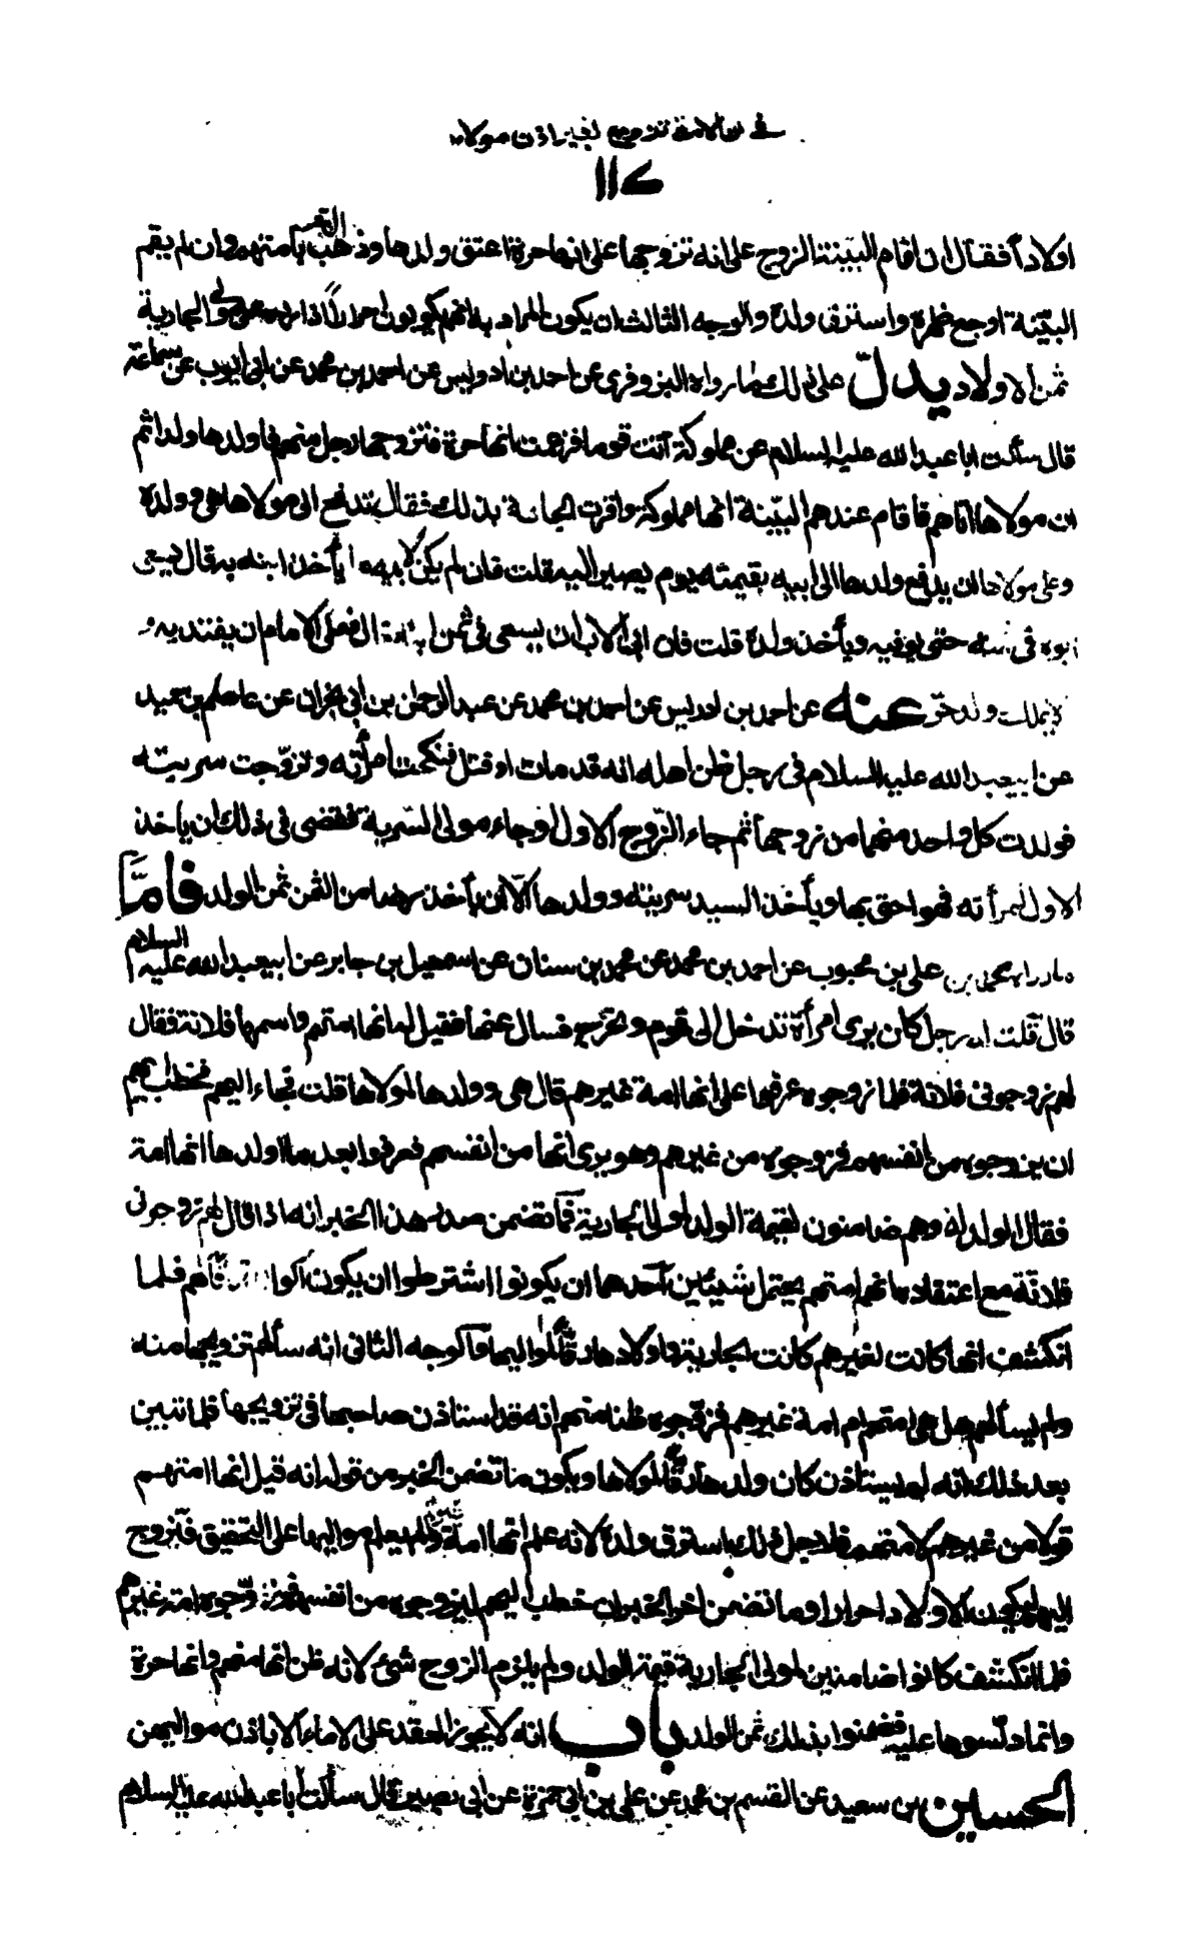 في ان الامة تتزوج بغير اذن مولاها
١١٤
اولاداً فقال ان اقام البينة الزوج على انه تزوجها على انها حرة اعتق ولدها وذهب القوم بامتهم وان لم يقم
البينة اوجع ظهره واسترق ولده والوجه الثالث ان يكون المراد به انهم يكونون احراراً اذا رد على مولى الجارية
ثمن الاولاد يدل على ذلك ما رواه البزوفري عن احمد بن ادريس عن احمد بن محمد عن ابي ايوب عن سماعة
قال سألت ابا عبد الله عليه السلام عن مملوكة أتت قوما فزعمت انها حرة فتزوجها رجل منهم فاولدها ولدا ثم
ان مولاها اتاهم فاقام عندهم البينة انها مملوكة واقرت الجارية بذلك فقال تدفع الى مولاها هي وولدها
وعلى مولاها ان يدفع ولدها الى ابيه بقيمته يوم يصير اليه قلت فان لم يكن لابيه ما يأخذ ابنه به قال يسعى
ابوه في ثمنه حتى يوفيه ويأخذ ولده قلت فان ابى الاب ان يسعى في ثمن ابنه قال فعلى الامام ان يفتديه و
لا يملك ولد حر عنه عن احمد بن ادريس عن احمد بن محمد عن عبد الرحمان بن ابي نجران عن عاصم بن حميد
عن ابيعبد الله عليه السلام في رجل ظن اهله انه قد مات او قتل فنكحت امرأته وتزوجت سريته
فولدت كل واحد منهما من زوجها ثم جاء الزوج الاول او جاء مولى السرية فقضى في ذلك ان ياخذ
الاول امرأته فهو احق بها ويأخذ السيد سريته وولدها الا ان يأخذ رضا من الثمن ثمن الولد فاما
ما رواه محمد بن علي بن محبوب عن احمد بن محمد عن محمد بن سنان عن اسمعيل بن جابر عن ابيعبد الله عليه السلام
قال قلت له رجل كان يرى امرأة تدخل الى قوم وتخرج فسال عنها فقيل له انها امتهم واسمها فلانة فقال
لهم زوجوني فلانة فلما زوجوه عرفوا على انها امة غيرهم قال هي وولدها لمولاها قلت فجاء اليهم فخطب اليهم
ان يزوجوه من انفسهم فزوجوه من غيرهم وهو يرى انها من انفسهم فعرفوا بعد ما اولدها انها امة
فقال الولد له وهم ضامنون لقيمة الولد لمولى الجارية فما تضمن صدر هذا الخبر انه اذا قال لهم زوجوني
فلانة مع اعتقاده انهم امتهم يحتمل شيئين احدهما ان يكونوا اشترطوا ان يكون الاولاد رقا لهم فلما
انكشف انها كانت لغيرهم كانت الجارية واولادها رقاً لمواليها والوجه الثاني انه سألهم تزويجها منه
ولم يسألهم هل هي امتهم ام امة غيرهم فزوجوه ظنا منهم انه قد استاذن صاحبها في تزويجها فلما تبين
بعد ذلك انه لم يستاذن كان ولدها رقاً لمولاها ويكون ما تضمن الخبر من قوله انه قيل انها امتهم
قولا من غيرهم لا منهم فلاجل ذلك استرق ولده لانه علم انها امة ولم يعلم مواليها على التحقيق فتزوج
اليهم ليكون الاولاد احرارا وما تضمن اخر الخبر ان خطب اليهم ليزوجوه من انفسهم فزوجوه امة غيرهم
فلما انكشف كانوا ضامنين لمولى الجارية قيمة الولد ولم يلزم الزوج شئ لانه ظن انها منهم وانها حرة
وانما دلسوها عليه فضمنوا بذلك ثمن الولد باب انه لا يجوز العقد على الاماء الا باذن مواليهن
الحسين بن سعيد عن القسم بن محمد عن علي بن ابي حمزة عن ابي بصير قال سألت ابا عبد الله عليه السلام